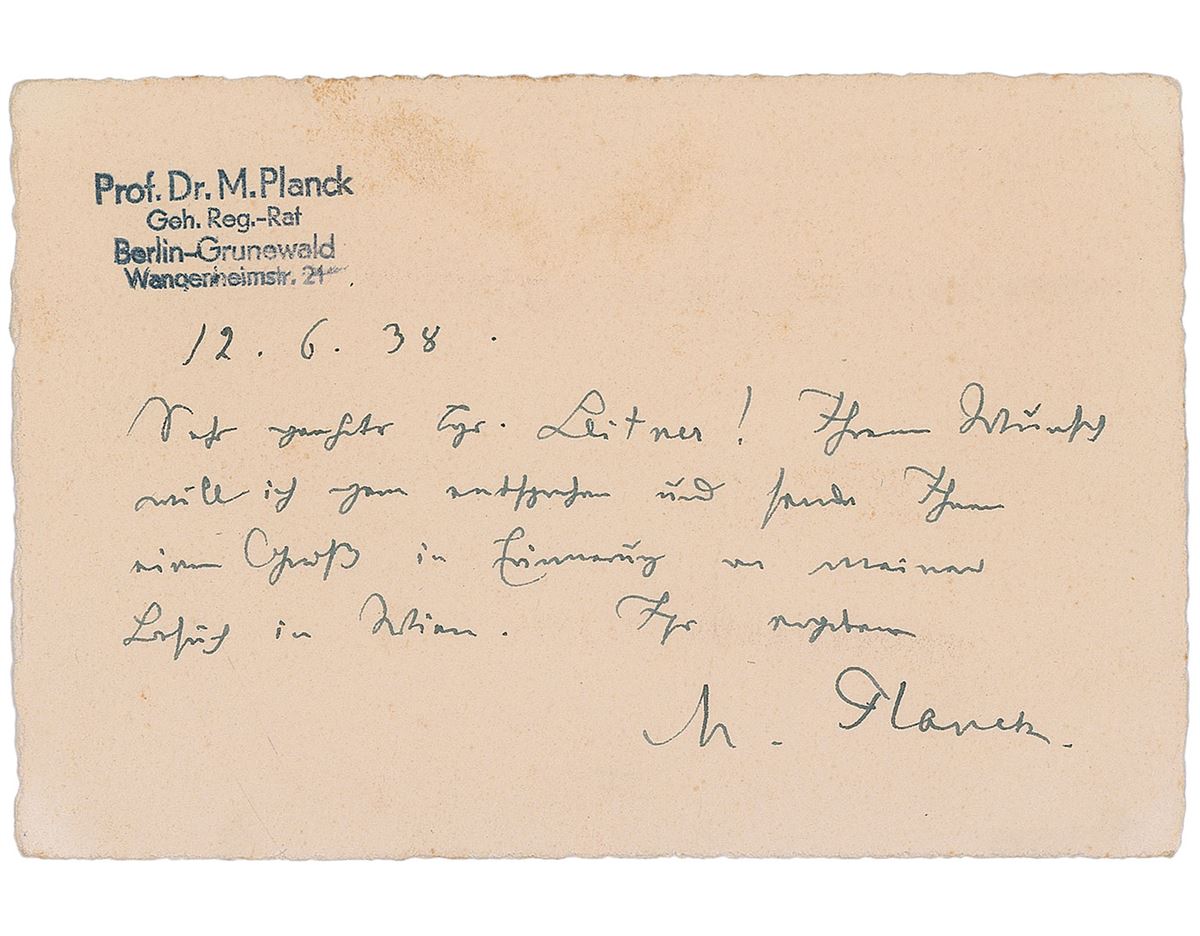 Prof. Dr. M. Planck
Geh. Reg.-Rat
Berlin-Grunewald
Wangenheimstr. 21
12. 6. 38.
Sehr geehrter Hr. Leitner! Ihrem Wunsch
will ich gern entsprechen und sende Ihnen
einen Gruß in Erinnerung an meinen
Besuch in Wien. Ihr ergebener
M. Planck.